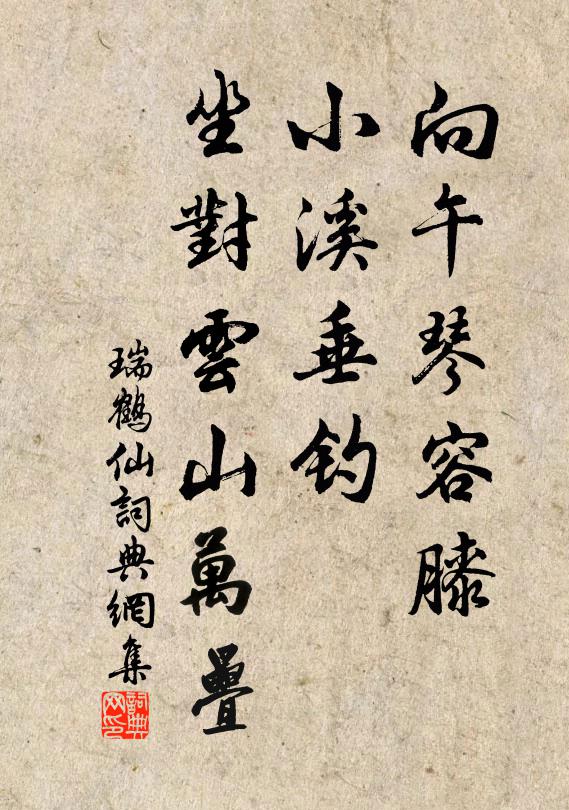 向午琴容膝
小溪垂钓
坐對雲山萬疊
瑞鶴仙詞典網集
詞典网印